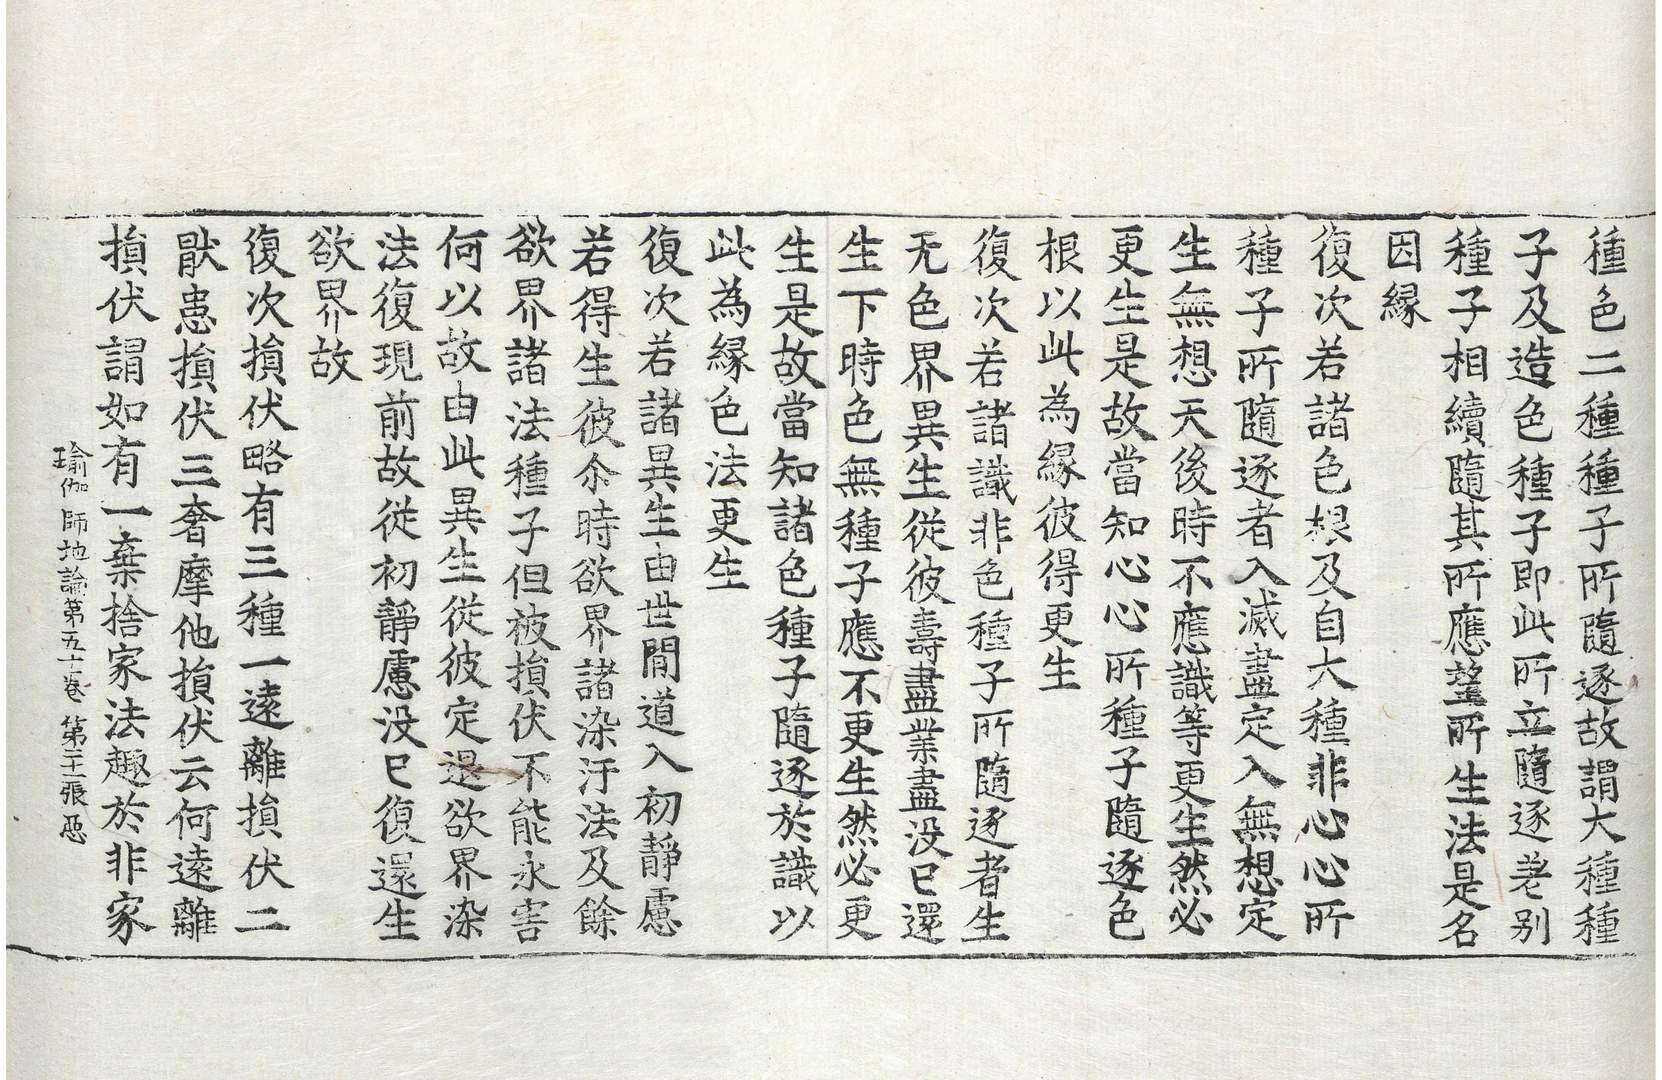 種色二種種子所隨逐故謂大種種
子及造色種子即此所立隨逐差别
種子相續隨其所應望所生法是名
因縁
復次若諸色根及自大種非心心所
種子所隨逐者入滅盡定入無想定
生無想天後時不應識等更生然必
更生是故當知心心所種子隨逐色
根以此為縁彼得更生
復次若諸識非色種子所隨逐者生
无色界異生従彼壽盡業盡没已還
生下時色無種子應不更生然必更
生是故當知諸色種子隨逐於識以
此為縁色法更生
復次若諸異生由世間道入初靜慮
若得生彼尒時欲界諸染汙法及餘
欲界諸法種子但被損伏不能永害
何以故由此異生従彼定退欲界染
法復現前故従初靜慮没已復還生
欲界故
復次損伏略有三種一逺離損伏二
猒患損伏三奢摩他損伏云何逺離
損伏謂如有一棄捨家法趣於非家
瑜伽師地論第五十一卷 第二十一張 惡